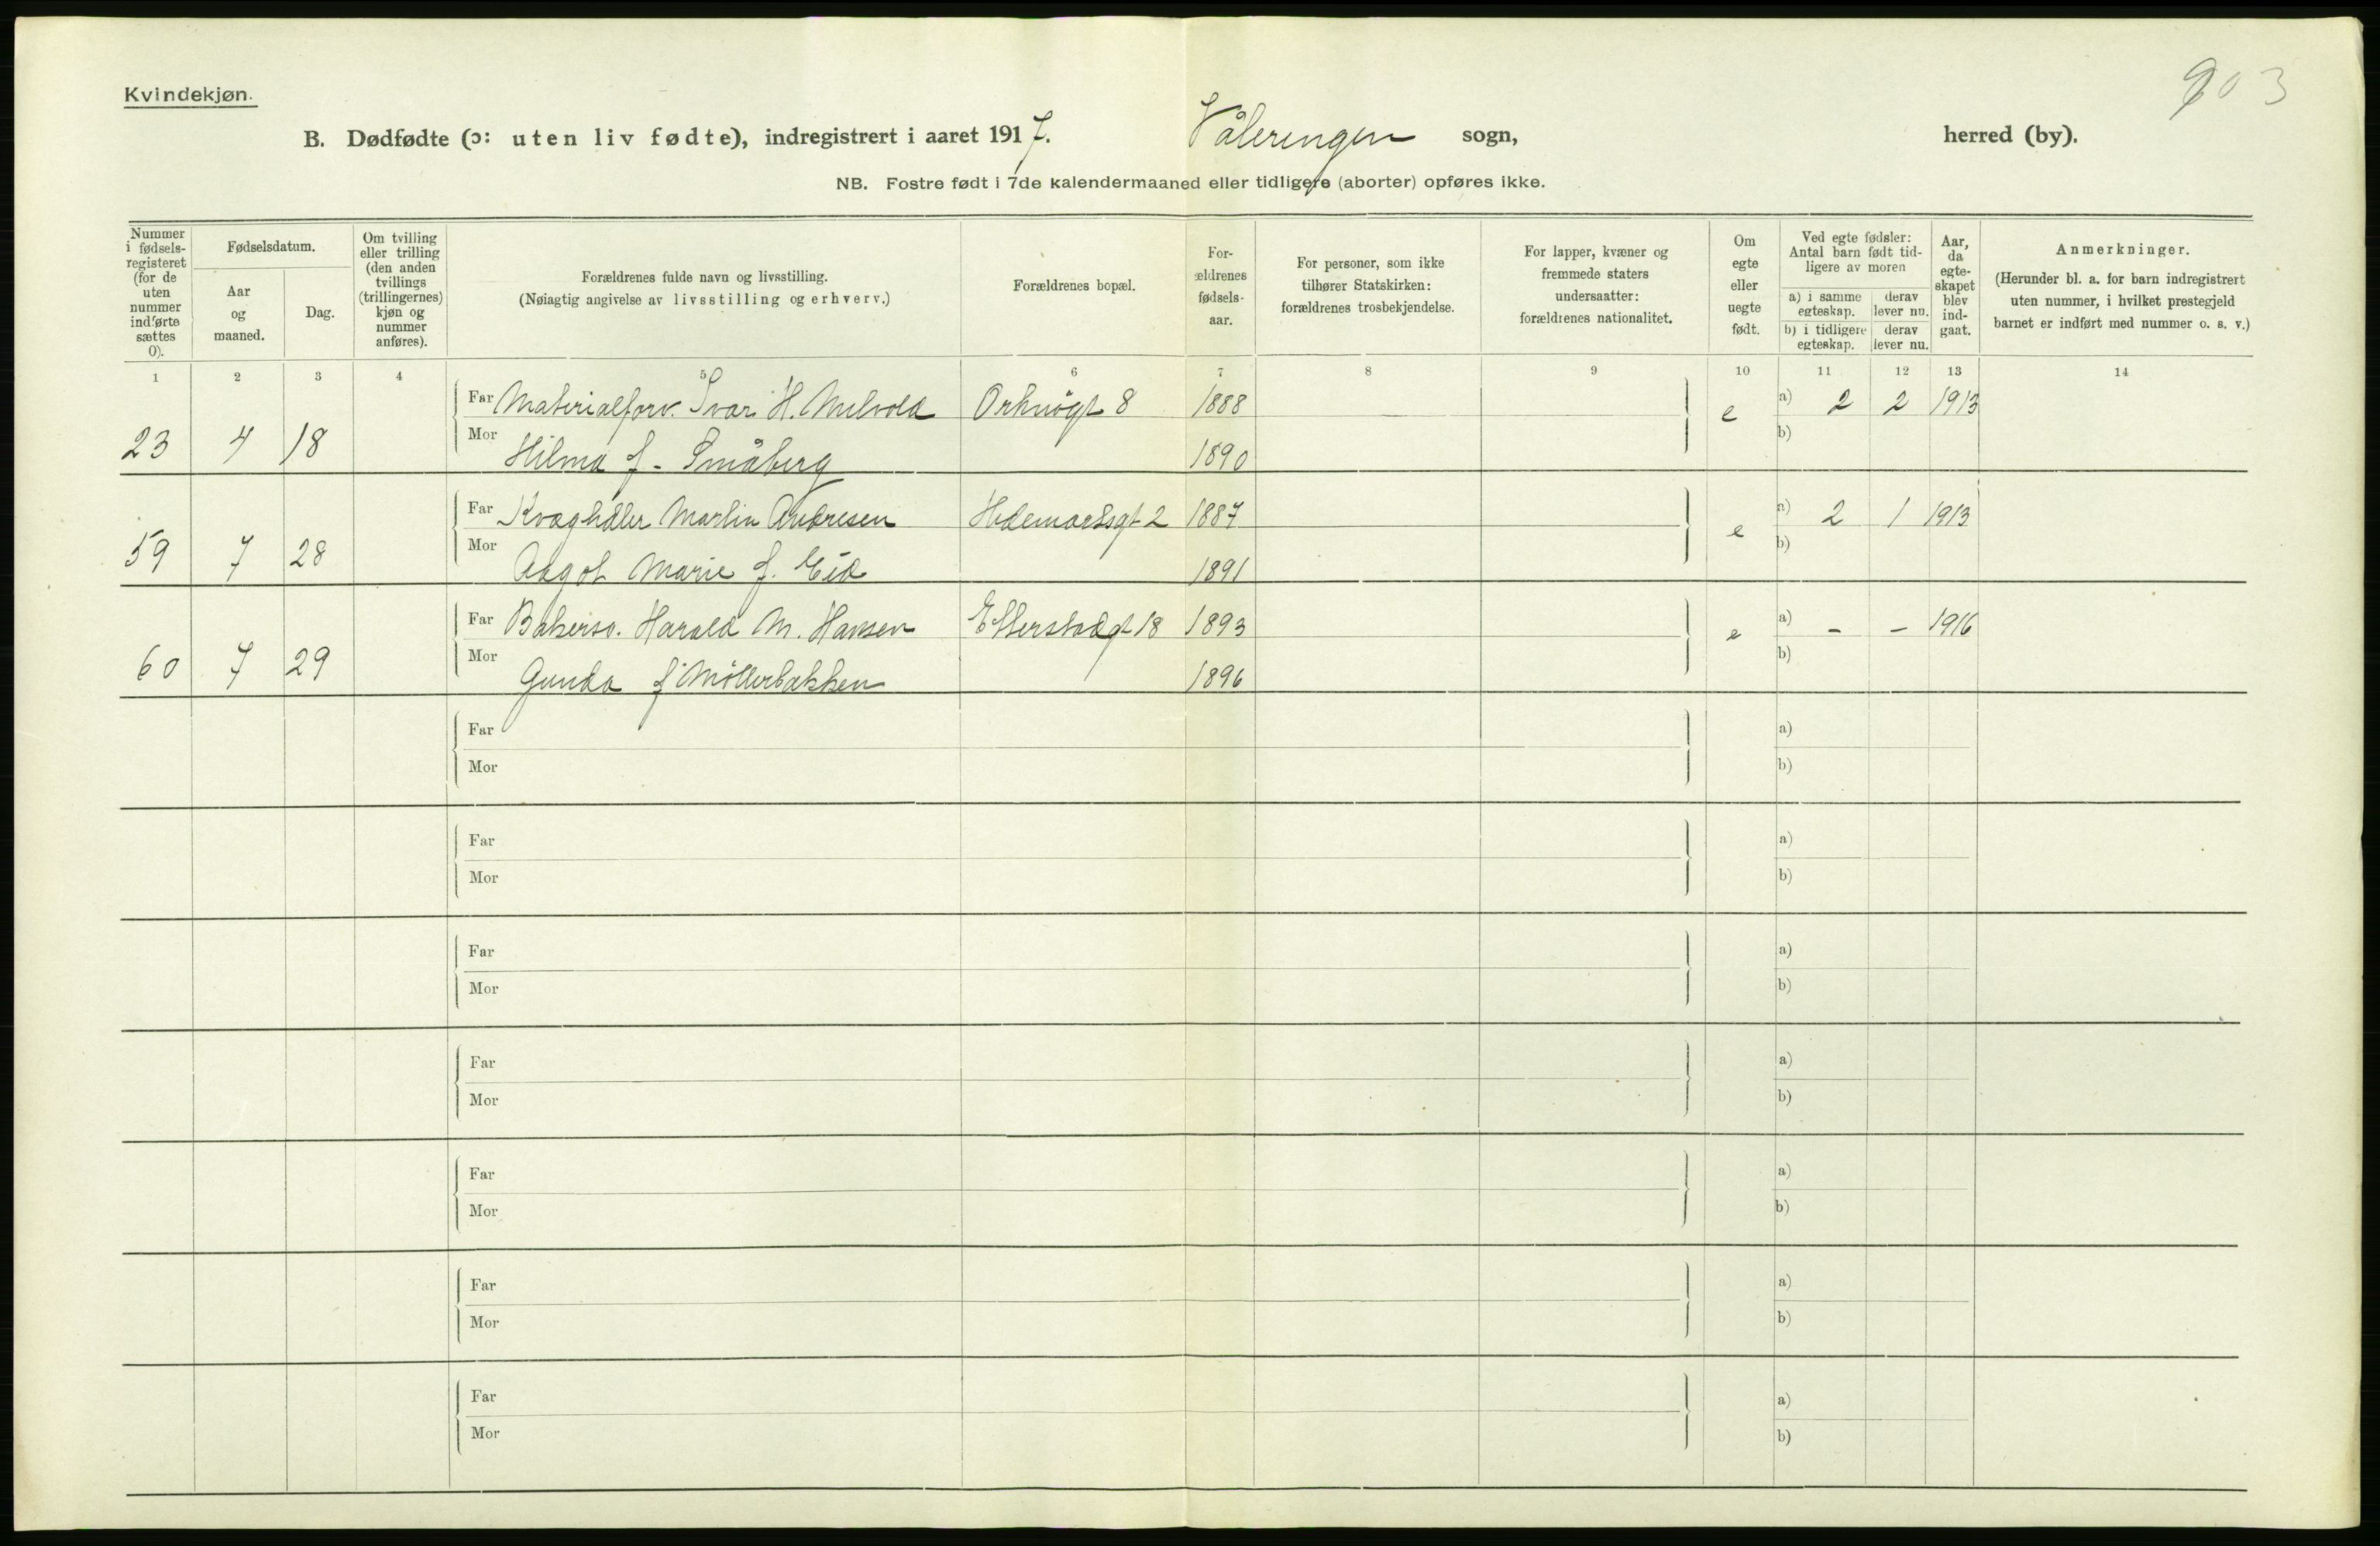 903
Kvindekjøn.
B. Dødfødte (ɔ: uten liv fødte), indregistrert i aaret 1917. Våleringen sogn, herred (by).
NB. Fostre født i 7de kalendermaaned eller tidligere (aborter) opføres ikke.
Nummer i fødsels-registeret (for de uten nummer indførte sættes 0).
Fødselsdatum.
Aar og maaned.
Dag.
Om tvilling eller trilling (den anden tvillings (trillingernes) kjøn og nummer anføres).
Forældrenes fulde navn og livsstilling.
(Nøiagtig angivelse av livsstilling og erhverv.)
Forældrenes bopæl.
For-ældrenes fødsels-aar.
For personer, som ikke tilhører Statskirken: forældrenes trosbekjendelse.
For lapper, kvæner og fremmede staters undersaatter: forældrenes nationalitet.
Om egte eller uegte født.
Ved egte fødsler: Antal barn født tid-ligere av moren
a) i samme egteskap. derav lever nu.
b) i tidligere egteskap. derav lever nu.
Aar, da egte-skapet blev ind-gaat.
Anmerkninger.
(Herunder bl. a. for barn indregistrert uten nummer, i hvilket prestegjeld barnet er indført med nummer o. s. v.)
1 2 3 4 5 6 7 8 9 10 11 12 13 14
Far Materialforv. Ivar H. Melvold Orknögt 8 1888 e a) 2 2 1913
23 4 18 Mor Hilma f. Småberg 1890 b)
Far Kvæghdler Martin Andresen Hedemarksgt 2 1887 e a) 2 1 1913
59 7 28 Mor Aagot Marie f. Eid 1891 b)
Far Bakersv. Harald M. Hansen Etterstadgt 18 1893 e a) - - 1916
60 7 29 Mor Gunda f. Möllerbakken 1896 b)
Far a)
Mor b)
Far a)
Mor b)
Far a)
Mor b)
Far a)
Mor b)
Far a)
Mor b)
Far a)
Mor b)
Far a)
Mor b)